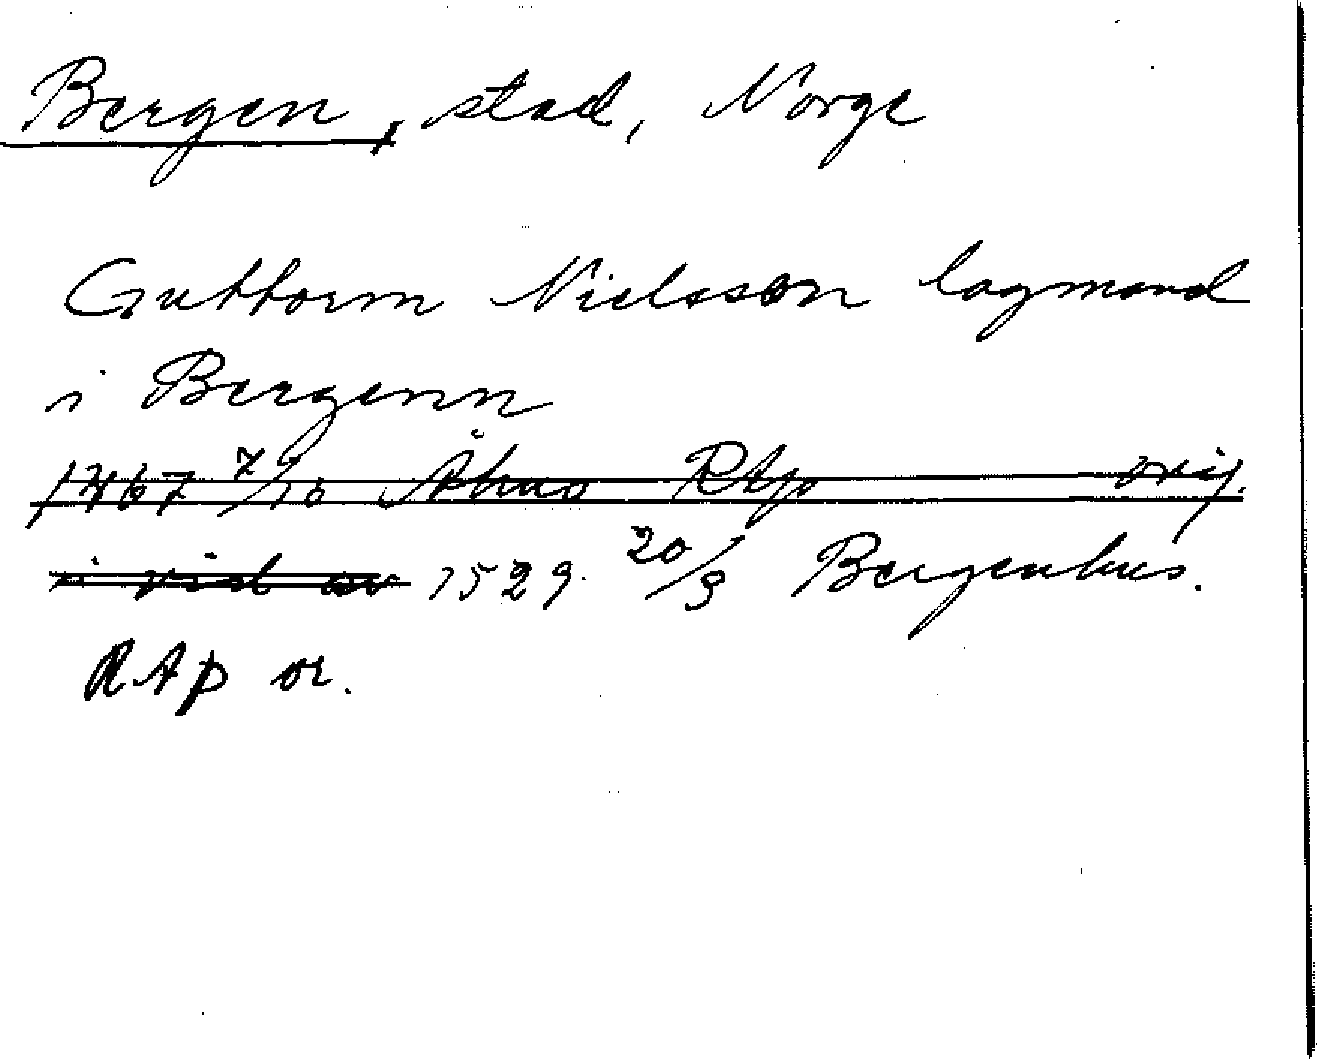 Bergen, stad, Norge
Guttorm Nielsson lagmand
i Bergenn
1467 7/10 Åhus RAp orig.
i vid av 1529. 20/9 Bergenhus.
RAp or.